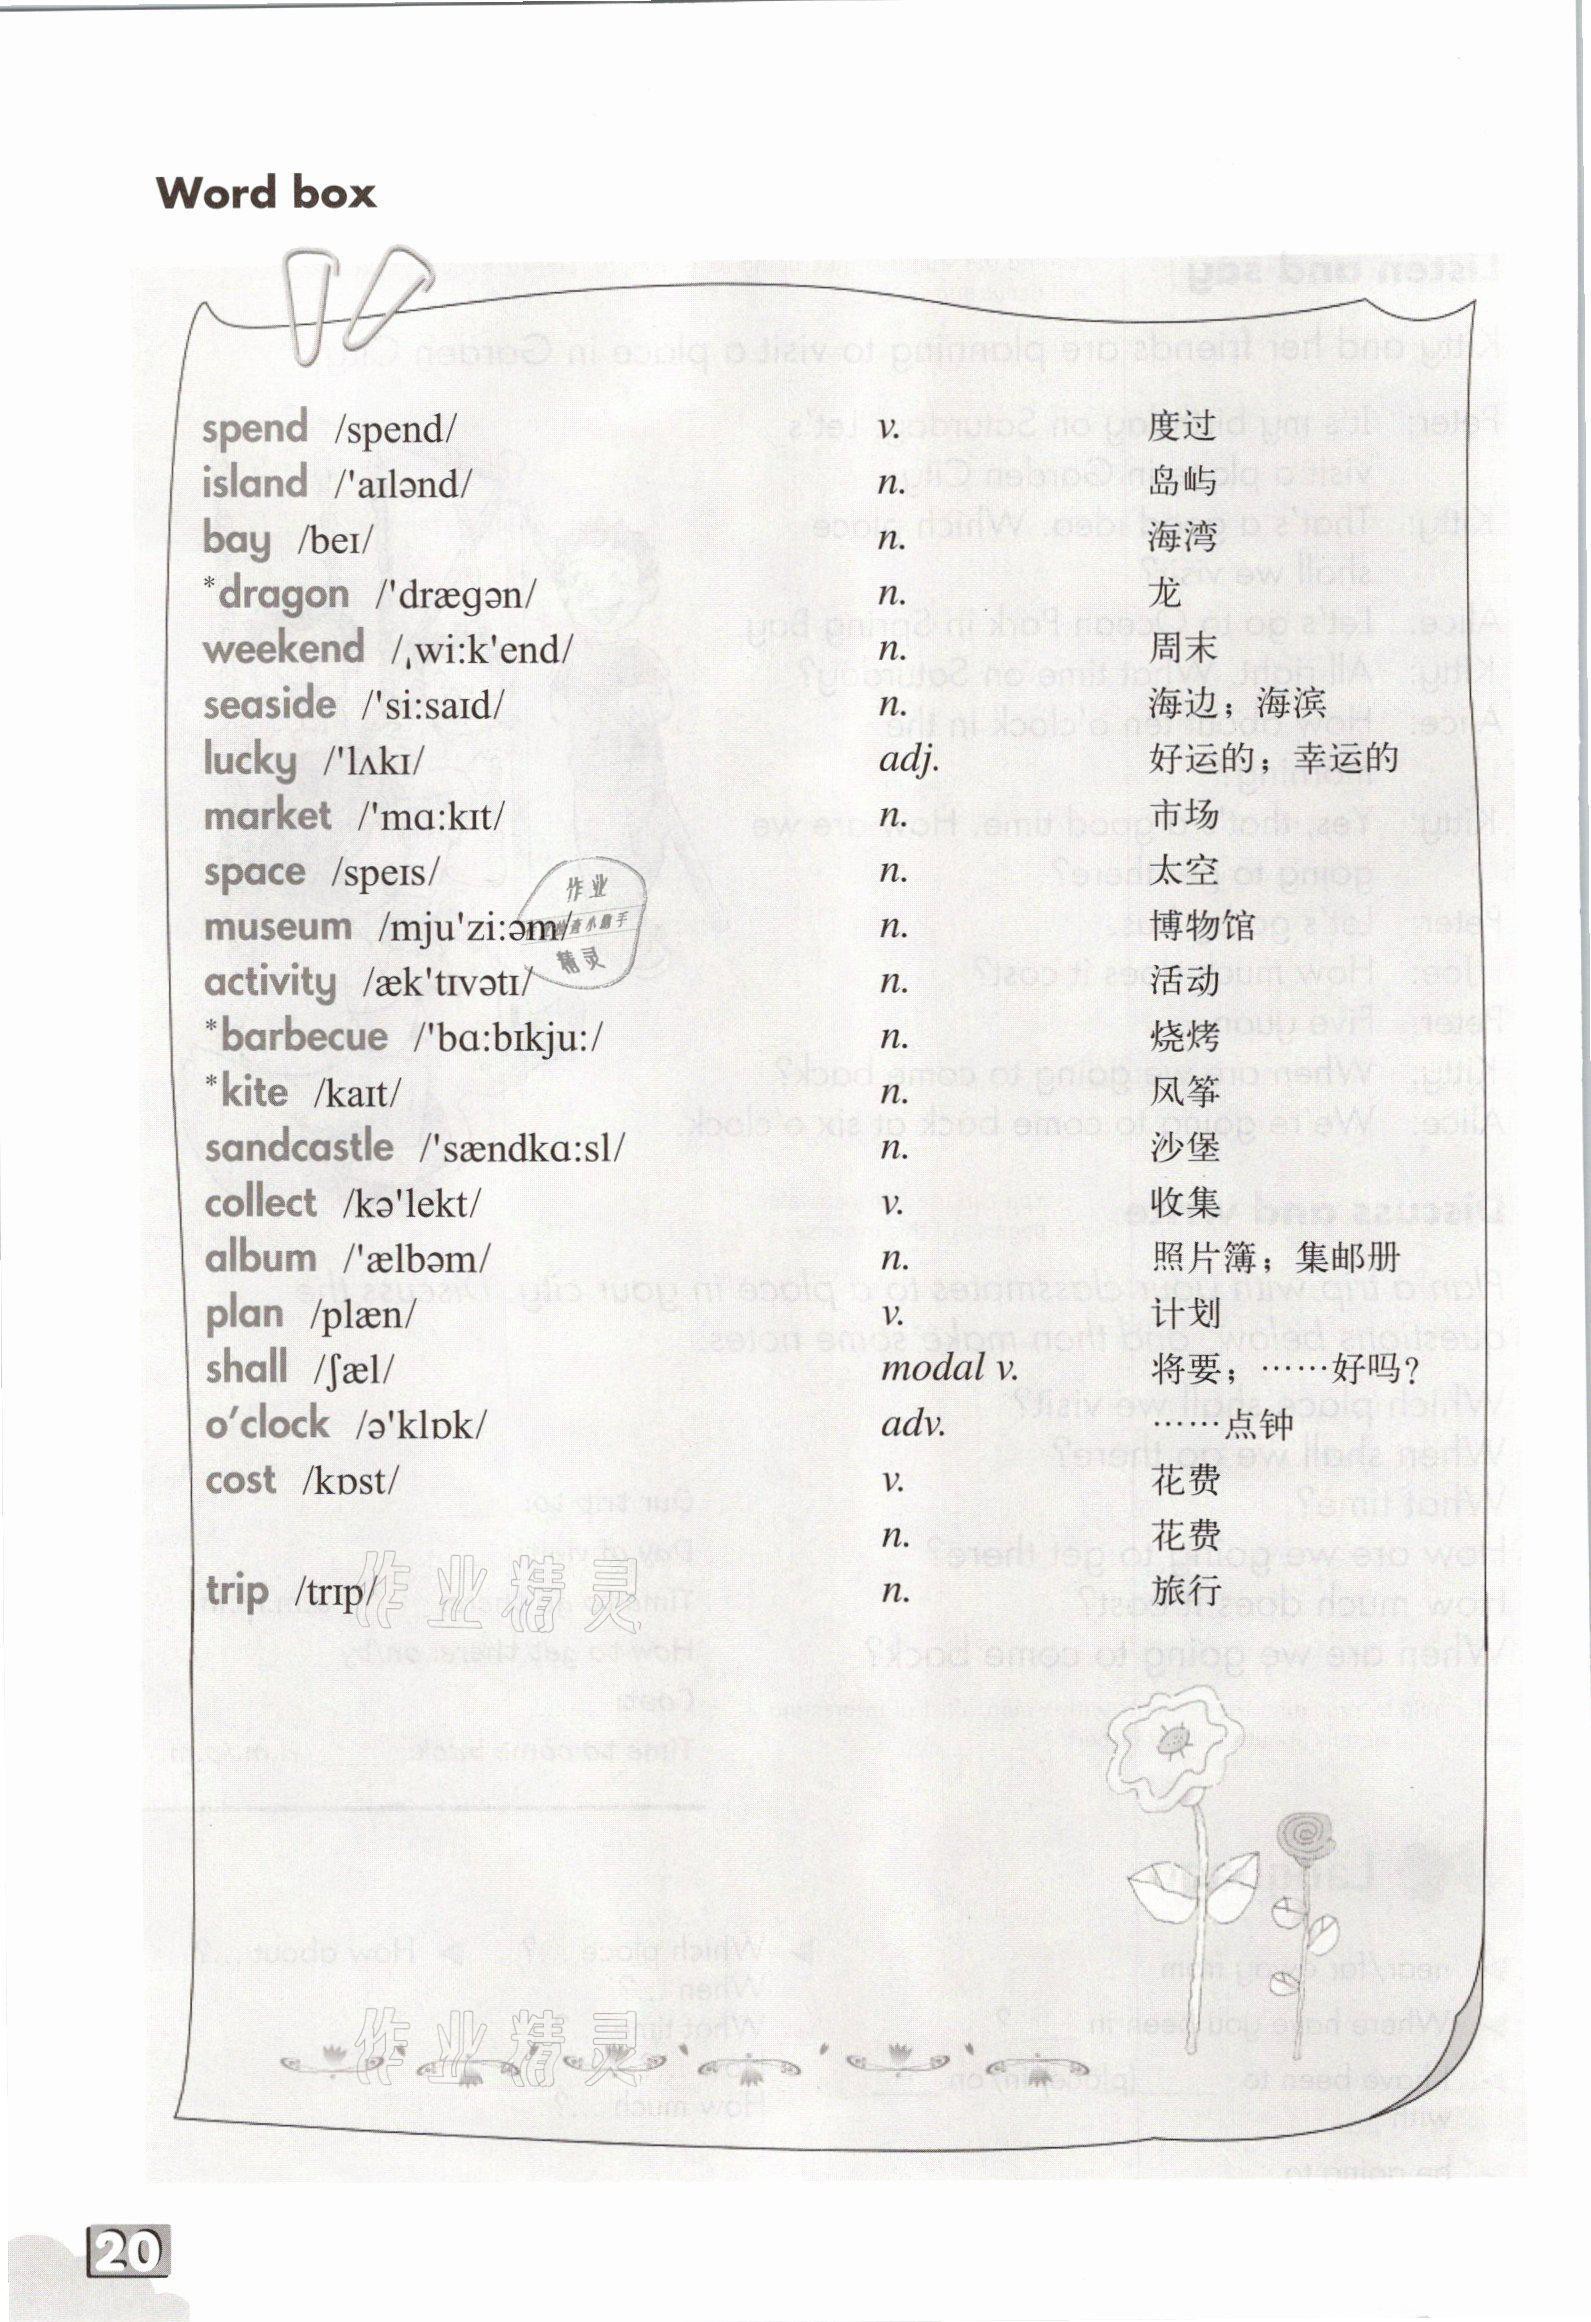 Word box
spend /spend/ v. 度过
island /'aɪlənd/ n. 岛屿
bay /beɪ/ n. 海湾
*dragon /'drægən/ n. 龙
weekend /ˌwi:k'end/ n. 周末
seaside /'si:saɪd/ n. 海边；海滨
lucky /'lʌkɪ/ adj. 好运的；幸运的
market /'mɑ:kɪt/ n. 市场
space /speɪs/ n. 太空
museum /mju'zi:əm/ n. 博物馆
activity /æk'tɪvətɪ/ n. 活动
*barbecue /'bɑ:bɪkju:/ n. 烧烤
*kite /kaɪt/ n. 风筝
sandcastle /'sændkɑ:sl/ n. 沙堡
collect /kə'lekt/ v. 收集
album /'ælbəm/ n. 照片簿；集邮册
plan /plæn/ v. 计划
shall /ʃæl/ modal v. 将要；……好吗？
o'clock /ə'klɒk/ adv. ……点钟
cost /kɒst/ v. 花费
n. 花费
trip /trɪp/ n. 旅行
作业精灵
作业精灵
20